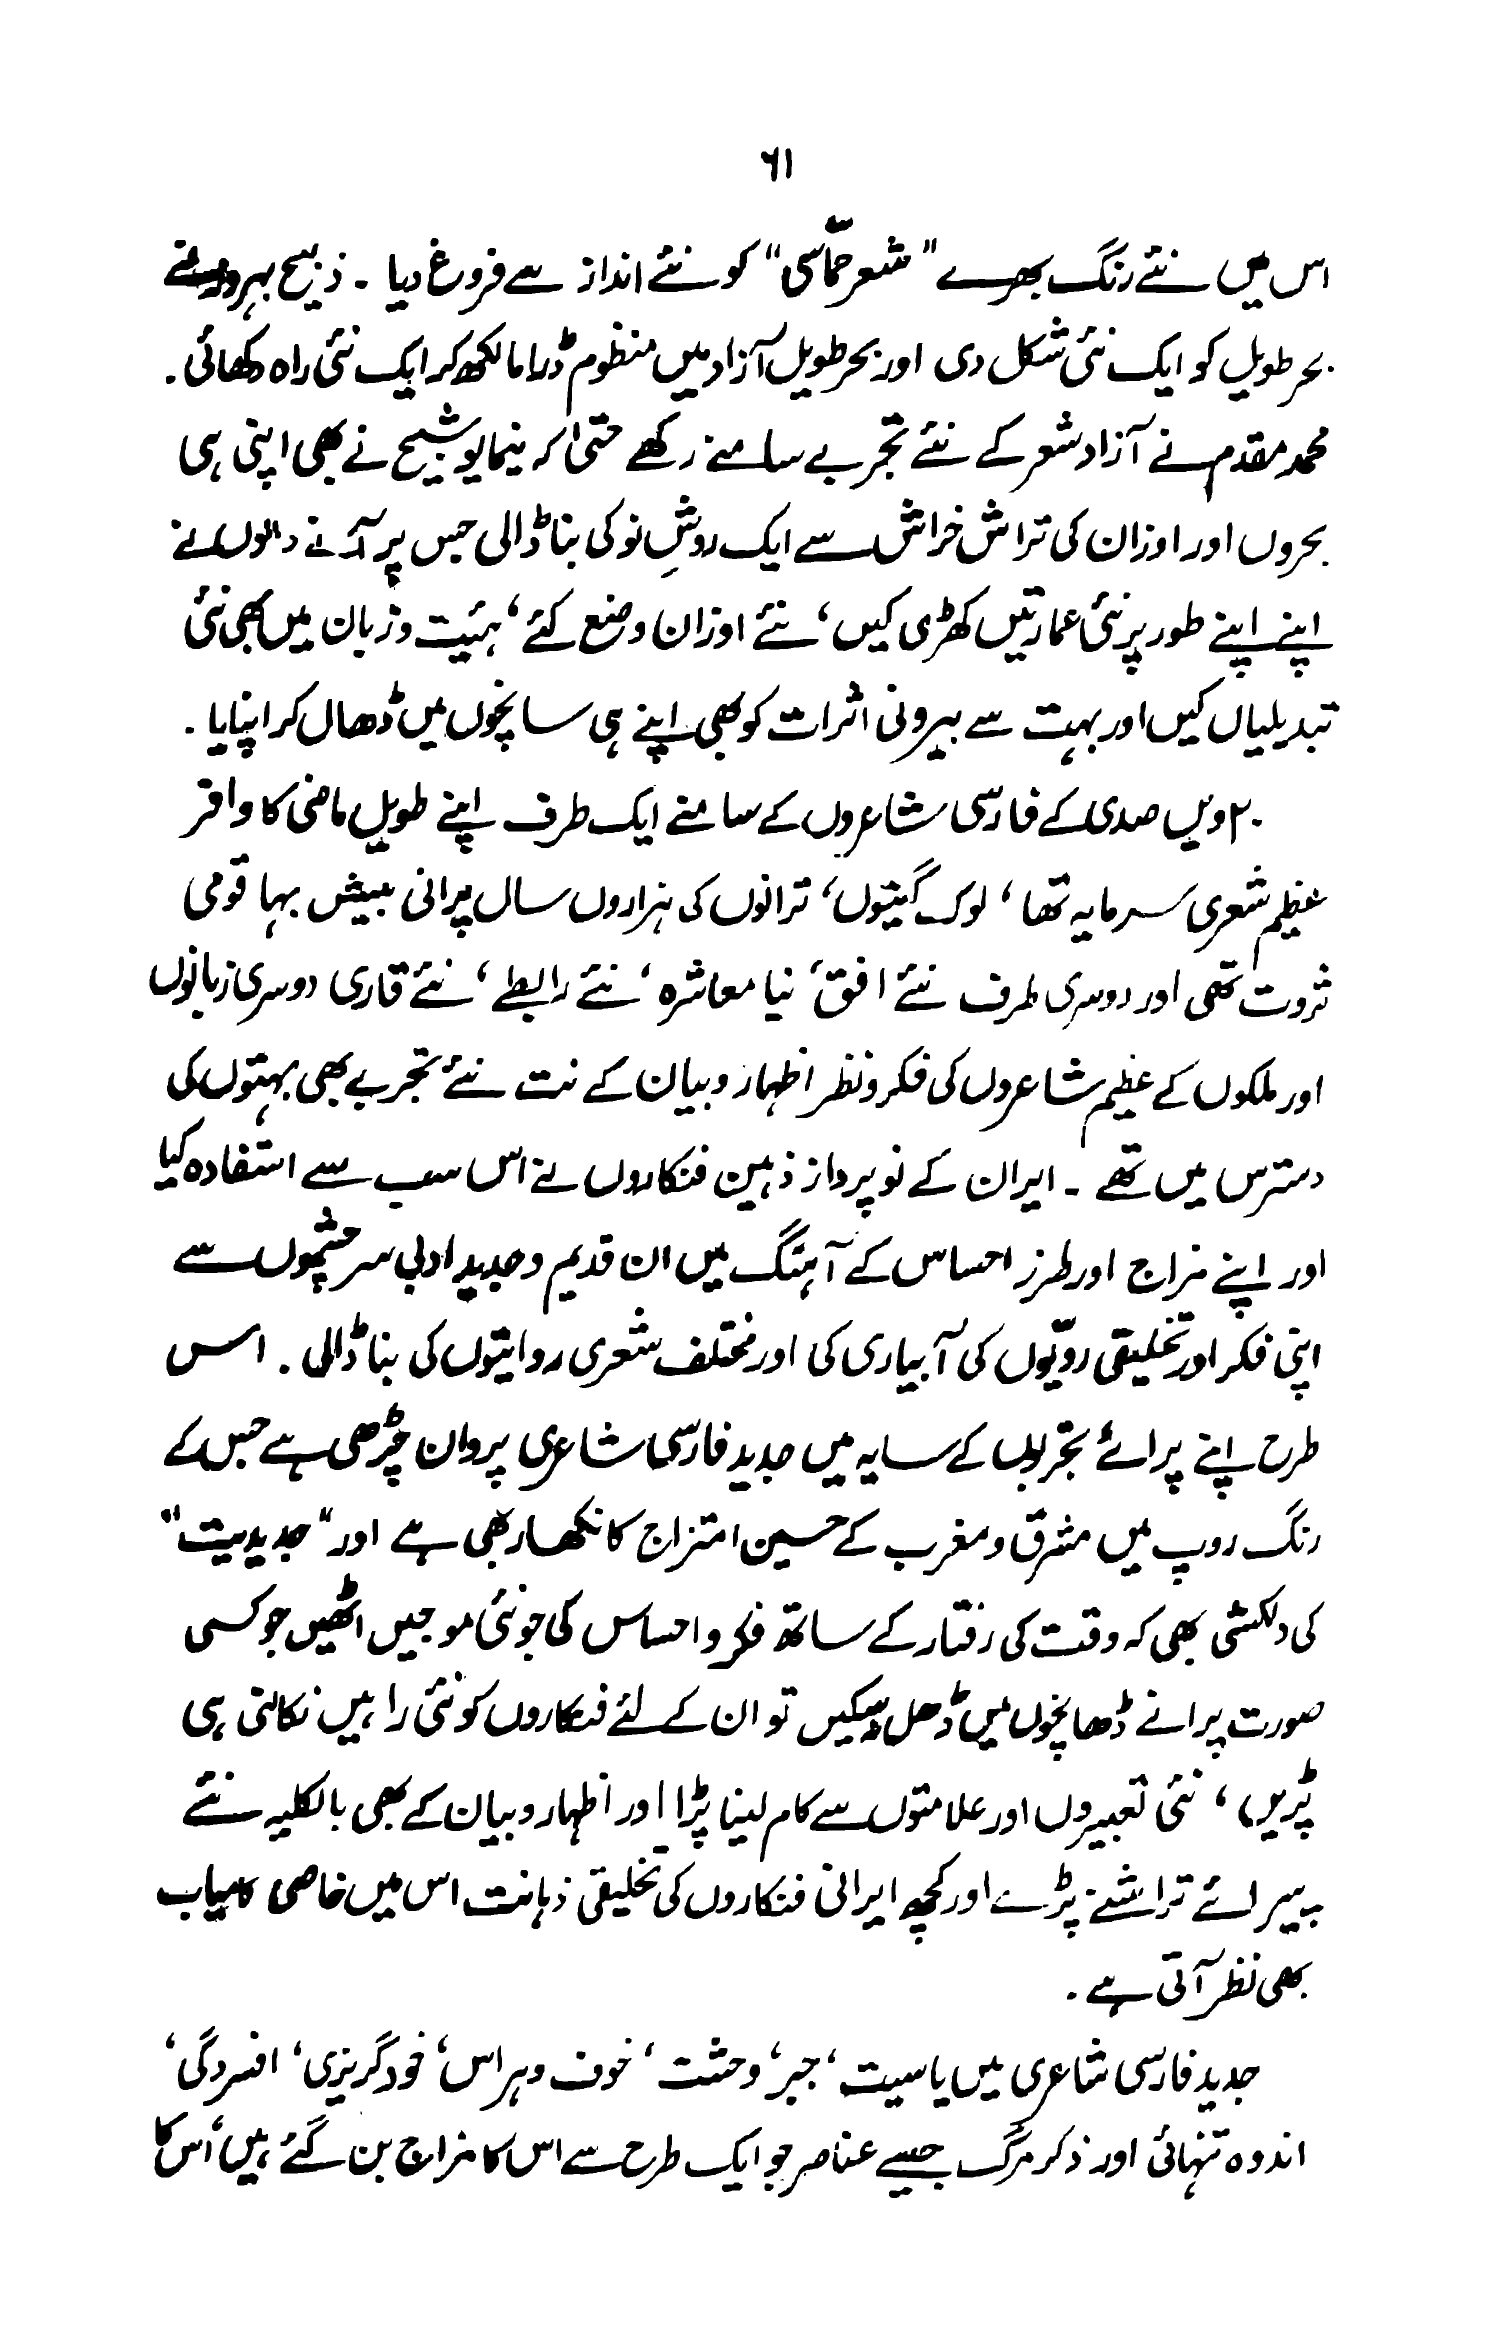 ۶۱
اس میں نئے رنگ بھرے "شعر حمّاسی" کو نئے انداز سے فروغ دیا ۔ ذبیح بہروز نے
بحر طویل کو ایک نئی شکل دی اور بحر طویل آزاد میں منظوم ڈراما لکھ کر ایک نئی راہ دکھائی ۔
محمد مقدم نے آزاد شعر کے نئے تجربے سامنے رکھے حتیٰ کہ نیما یوشیج نے بھی اپنی ہی
بحروں اور اوزان کی تراش خراش سے ایک روشِ نو کی بنا ڈالی جس پر آنے والوں نے
اپنے اپنے طور پر نئی عمارتیں کھڑی کیں، نئے اوزان وضع کئے، ہئیت و زبان میں بھی نئی
تبدیلیاں کیں اور بہت سے بیرونی اثرات کو بھی اپنے ہی سانچوں میں ڈھال کر اپنایا ۔
۲۰ ویں صدی کے فارسی شاعروں کے سامنے ایک طرف اپنے طویل ماضی کا وافر
عظیم شعری سرمایہ تھا، لوک گیتوں، ترانوں کی ہزاروں سال پرانی بیش بہا قومی
ثروت تھی اور دوسری طرف نئے افق، نیا معاشرہ، نئے رابطے، نئے قاری دوسری زبانوں
اور ملکوں کے عظیم شاعروں کی فکر و نظر اظہار و بیان کے نت نئے تجربے بھی بہتوں کی
دسترس میں تھے ۔ ایران کے نو پرداز ذہین فنکاروں نے اس سب سے استفادہ کیا
اور اپنے مزاج اور طرز احساس کے آہنگ میں ان قدیم و جدید ادبی سرچشموں سے
اپنی فکر اور تخلیقی رویّوں کی آبیاری کی اور مختلف شعری روایتوں کی بنا ڈالی ۔ اس
طرح اپنے پرائے تجربوں کے سایہ میں جدید فارسی شاعری پروان چڑھی ہے جس کے
رنگ روپ میں مشرق و مغرب کے حسین امتزاج کا نکھار بھی ہے اور "جدیدیت"
کی دلکشی بھی کہ وقت کی رفتار کے ساتھ فکر و احساس کی جو نئی موجیں اٹھیں جو کسی
صورت پرانے ڈھانچوں میں ڈھل نہ سکیں تو ان کے لئے فنکاروں کو نئی راہیں نکالنی ہی
پڑیں، نئی تعبیروں اور علامتوں سے کام لینا پڑا اور اظہار و بیان کے بھی بالکلیہ نئے
پیرائے تراشنے پڑے اور کچھ ایرانی فنکاروں کی تخلیقی ذہانت اس میں خاصی کامیاب
بھی نظر آتی ہے ۔
جدید فارسی شاعری میں یاسیت، جبر، وحشت، خوف و ہراس، خود گریزی، افسردگی،
اندوہ تنہائی اور ذکر مرگ جیسے عناصر جو ایک طرح سے اس کا مزاج بن گئے ہیں، اُس کا